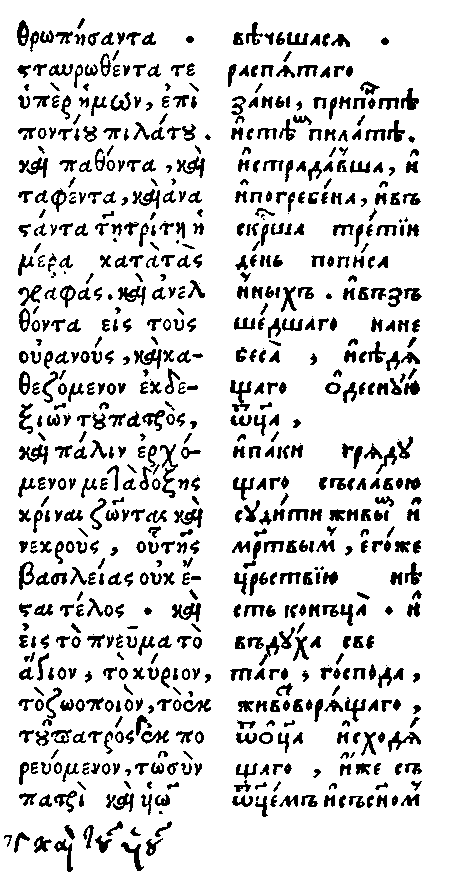 θρωπήσαντα .
ϛαυρωθέντα τε
ὑπὲρ ἡμων, ἐπὶ
ποντίȣ πιλάτȣ .
καὶ παθόντα, καὶ
ταφέντα, καὶ ἀνα
ϛάντα τῆ τρίτη ἡ
μέρα κατὰ τὰς
γραφάς. καὶ ἀνελ
θόντα εἰς τοὺς
οὐρανούς, καὶ κα-
θεζόμενον ἐκ δε-
ξιῶν τȣ͂ πατρὸς,
καὶ πάλιν ἐρχό-
μενον μετὰ δόξης
κρίναι ζῶντας καὶ
νεκροὺς, οὗ τῆς
βασιλείας ουκ ἔ-
ϛαι τέλος . καὶ
εἰς τὸ πνεῦμα τὸ
ἅγιον, τὸ κύριον,
τὸ ζωοποιὸν, τὸ ἐκ
τȣ͂ πατρός ἐκ πο
ρευόμενον, τῶ σὺν
πατρὶ καὶ ὑιῶ
καὶ
вѣ́чьшасѧ .
распѧ́таго
за́ны, припо́тѣ
и҆стѣ́ пила́тѣ.
и҆страда́вша, и҆
и҆погребе́на, и҆въ
скр҃ша тре́тїи
де́нь попи́са
нныхъ . и҆възъ
ше́дшаго нане
беса̀ , и҆сѣдѧ́
щаго ѻ҆деснꙋ́ю
ѿц҃а ,
и҆па́ки грѧдꙋ
щаго съсла́вою
сꙋди́ти живы́ и҆
мр҃твым, е҆го́же
цр҃ьствїю нѣ
сть конъца̀ . и҆
въдꙋ́ха све
та́го , го́спода ,
животворѧ́щаго ,
ѿѻц҃а и҆сходѧ́
щаго , и҆́же съ
ѿц҃е́мъ и҆съсн҃ом